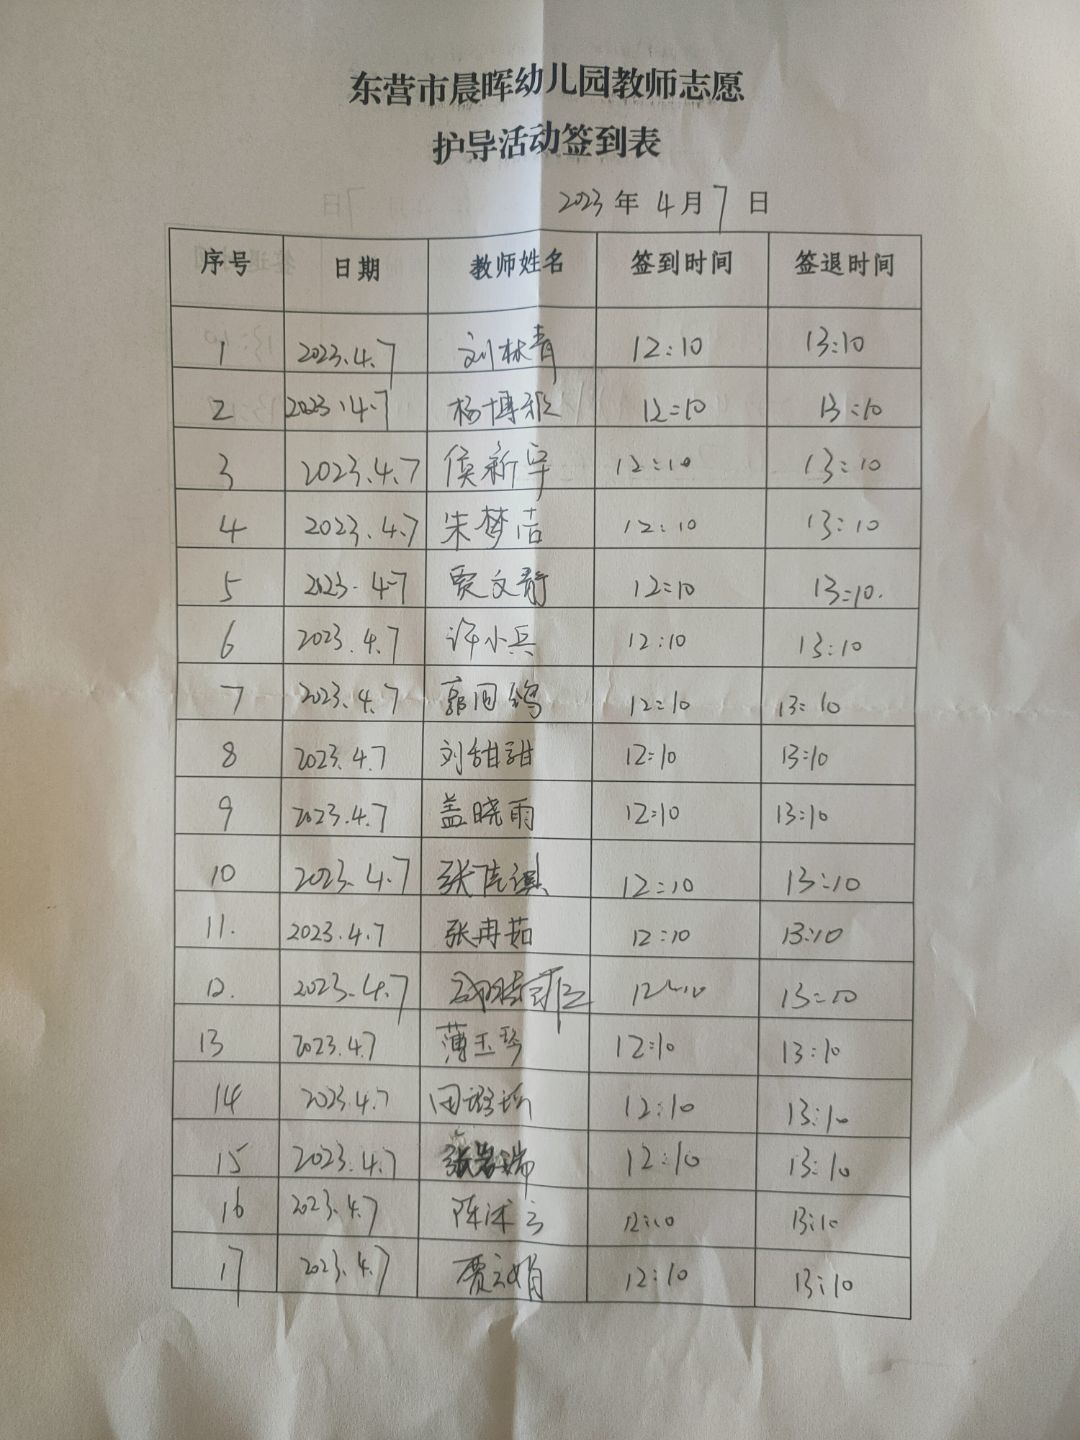 东营市晨晖幼儿园教师志愿
护导活动签到表
2023年4月7日
序号 日期 教师姓名 签到时间 签退时间
1 2023.4.7 刘林青 12:10 13:10
2 2023.4.7 杨博雅 12:10 13:10
3 2023.4.7 侯新宇 12:10 13:10
4 2023.4.7 朱梦洁 12:10 13:10
5 2023.4.7 贾文静 12:10 13:10.
6 2023.4.7 许小兵 12:10 13:10
7 2023.4.7 12:10 13:10
8 2023.4.7 刘甜甜 12:10 13:10
9 2023.4.7 盖晓雨 12:10 13:10
10 2023.4.7 12:10 13:10
11. 2023.4.7 张冉茹 12:10 13:10
12. 2023.4.7 12:10 13:10
13 2023.4.7 薄玉琴 12:10 13:10
14 2023.4.7 12:10 13:10
15 2023.4.7 12:10 13:10
16 2023.4.7 12:10 13:10
17 2023.4.7 贾云娟 12:10 13:10